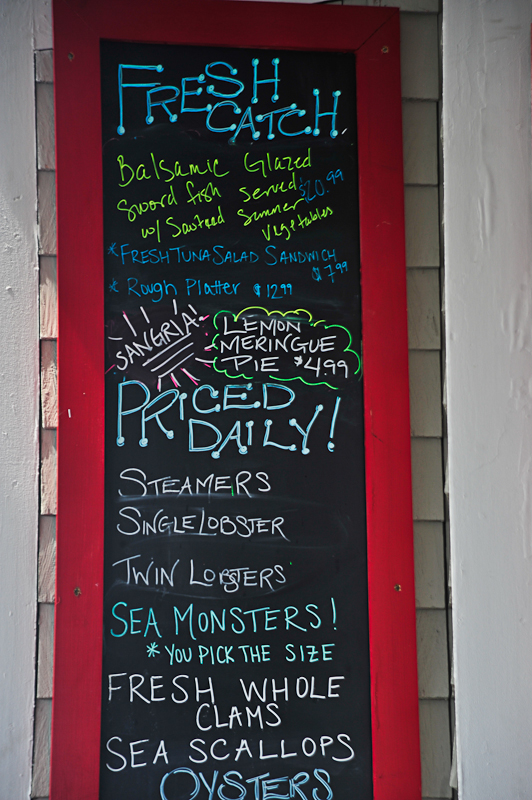 FRESH
CATCH
Balsamic Glazed
Sword fish served $20.99
w/ Sauteed Summer
Vegetables
*FRESH TUNA SALAD SANDWICH
$7.99
* Rough Platter $12.99
SANGRIA!
LEMON
MERINGUE
PIE $4.99
PRICED
DAILY!
STEAMERS
SINGLE LOBSTER
TWIN LOBSTERS
SEA MONSTERS!
*YOU PICK THE SIZE
FRESH WHOLE
CLAMS
SEA SCALLOPS
OYSTERS